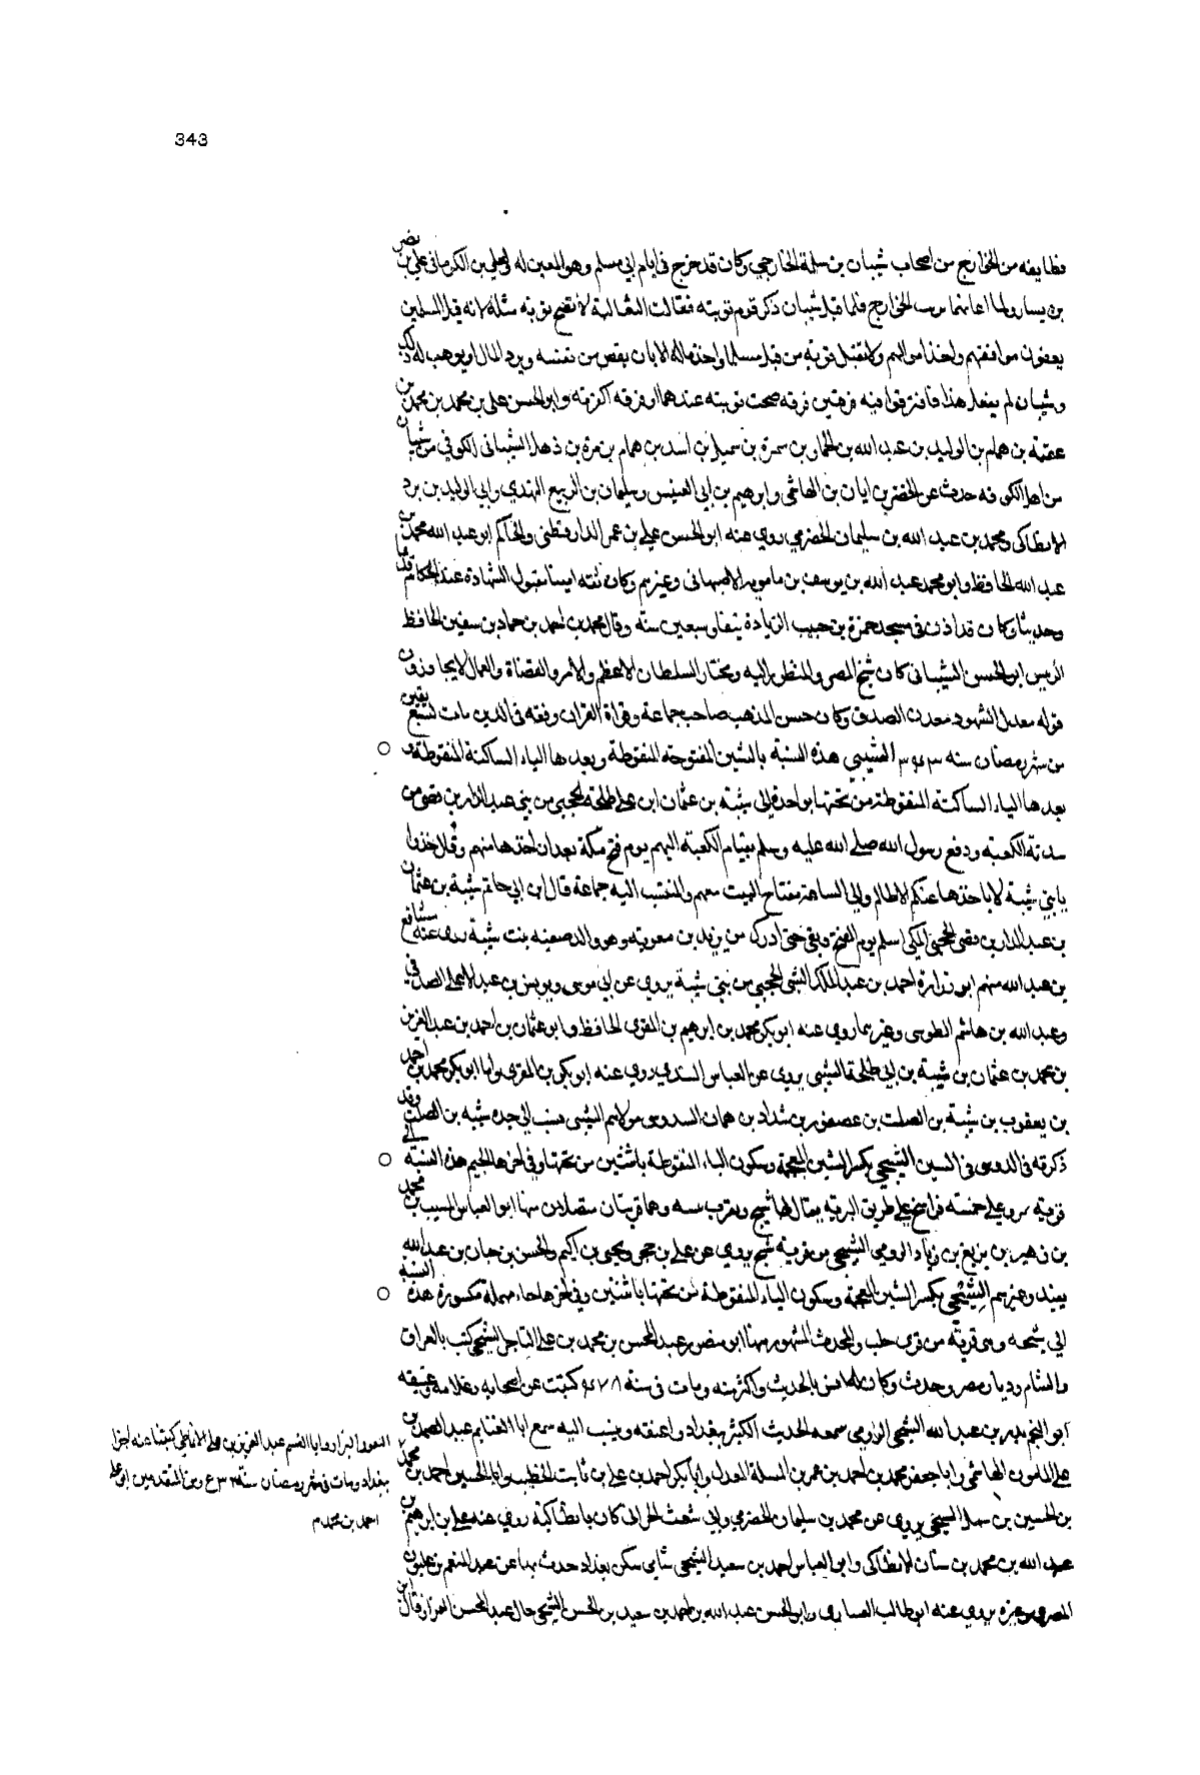 343
فطايفه من الخوارج من اصحاب شيبان بن سلمة الخارجي وكان قد خرج في ايام ابي مسلم وهو المعين له ولعلي بن الكرماني على نصر
بن يسار ولما اعانهما برىت الخوارج فلما قتل شيبان ذكر قوم توبته فقالت الثعالبة لا تصح توبة مثله لانه قتل المسلمين
موافقيهم واخذ اموالهم ولا تقبل توبة من قتل مسلما واخذ ماله الا بان يقص من نفسه ويرد المال او يوهب له ذلك
وشيبان لم يفعل هذا فافترقوا فيه فرقتين فرقه صحت توبته عندها وفرقه اكفرته وابو الحسن علي بن محمد بن محمد بن
عقبة بن همام بن الوليد بن عبد الله بن الحمار بن سمرة بن اسد بن همام بن مرة بن ذهل الشيباني الكوفي من شيبان
من اهل الكوفه حدث عن الخضر بن ابان بن الهاشمي وابرهيم بن ابي العنبس وسليمان بن الربيع النهدي وابي الوليد بن برد
الانطاكي ومحمد بن عبد الله بن سليمان الحضرمي روي عنه ابو الحسن علي بن عمر الدارقطني والحاكم ابو عبد الله محمد بن
عبد الله الحافظ وابو محمد عبد الله بن يوسف بن مامويه الاصبهاني وغيرهم وكان ثقة امينا مقبول الشهادة عند الحكام
وكان قد اذن في مسجد حمزة بن حبيب الزيادة نيفا وسبعين سنه وقال محمد بن احمد بن حماد بن سفين الحافظ
الرئيس ابو الحسن الشيباني كان شيخ المصر والمنظور اليه ومختار السلطان الاعظم والامر والقضاة والعمال لا يجاوزون
قوله معدل الشهود معدن الصدق وكان حسن المذهب صاحب جماعة وقراة القران وفقه في الدين مات لسبع بقين
من شهر رمضان سنه ٣٤٣ الشيبي هذه النسبة بالشين المفتوحة المنقوطة وبعدها الياء الساكنة المنقوطة
بعدها الياء الساكنة المنقوطة من تحتها بواحدة الى شيبة بن عثمان ابن ابي طلحة الحجبي من بني عبد الدار بن قصي من
سدنة الكعبة ودفع رسول الله صلى الله عليه وسلم مفتاح الكعبة اليهم يوم فتح مكة بعد ان اخذها منهم وقال خذوا
يا بني شيبة لا ياخذها عنكم الا ظالم والى الساعة مفتاح البيت معهم والمنتسب اليه جماعة قال ابن ابي حاتم شيبة بن عثمان
بن عبد الدار بن قصي الحجبي المكي اسلم يوم الفتح وبقي حتى ادرك من يزيد بن معوية وهو والد صفية بنت شيبة روى عنه مسافع
بن عبد الله منهم ابو زرارة احمد بن عبد الملك الشيبي الحجبي من بني شيبة يروي عن ابي موسى ويونس بن عبد الاعلى الصدفي
وعبد الله بن هاشم الطوسي وغيرهما روي عنه ابو بكر محمد بن ابرهيم بن المقرى الحافظ وابو عثمان بن احمد بن عبد العزيز
بن محمد بن عثمان بن شيبة بن ابي طلحة الشيبي يروي عن العباس السندي روي عنه ابو بكر بن المقرى واما ابو بكر محمد بن احمد
بن يعقوب بن شيبة بن الصلت بن عصفور بن شداد بن هميان السدوسي مولاهم الشيبي فنسب الى جده شيبه بن الصلت وقد
ذكرته في السدوسي في السين الشيجي بكسر الشين المعجمة وسكون الياء المنقوطة باثنتين من تحتها وفي اخرها الجيم هذه النسبة الى
قرية بمرو على خمسة فراسخ على طريق البرية يقال لها شيج وهما قريتان متصلتان منها ابو العباس المسيب بن محمد
بن زهير بن بزيع بن زياد الرومي الشيجي من قرية شيج يروي عن علي بن حجر ويحيى بن اكثم والحسن بن حماد بن عبد الله
وغيرهم الشيحي بكسر الشين المعجمة وسكون الياء المنقوطة من تحتها باثنتين وفي اخرها حاء مهملة مكسورة هذه النسبة
الى شيحه وهي قرية من قرى حلب والمحدث المشهور منها ابو منصور عبد المحسن بن محمد بن علي التاجر الشيحي كتب بالعراق
والشام وديار مصر وحدث وكان له انس بالحديث واكثر منه ومات في سنة ٤٨٧ كتبت عن اصحابه وغلامه وعتيقه
ابو النجم بدر بن عبد الله الشيحي الرومي سمعه الحديث الكثير ببغداد واعتقه وينسب اليه سمع ابا الغنايم عبد الصمد بن
علي المامون الهاشمي وابا جعفر محمد بن احمد بن عمر بن المسلمة العدل وابا بكر احمد بن علي بن ثابت الخطيب وابا الحسين احمد بن محمد
بن الحسين بن سهل الشيحي يروي عن محمد بن سليمان الحضرمي وابي شعيب الحراني كان بانطاكية روي عنه علي بن ابرهيم بن
عبد الله بن محمد بن سنان الانطاكي وابو العباس احمد بن سعيد الشيحي شامي سكن بغداد حدث بها عن عبد المنعم بن غلبون
المصري وغيره يروي عنه ابو طالب العشاري وابو الحسن عبد الله بن احمد بن سعيد بن الحسن الشيحي خال عبد المحسن البزاز قال ابن
النقور البزاز وابا القسم عبد العزيز بن علي الانماطي كتبنا عنه اجزا
ببغداد ومات في شهر رمضان سنة ومن المتقدمين ابو علي
احمد بن محمد م